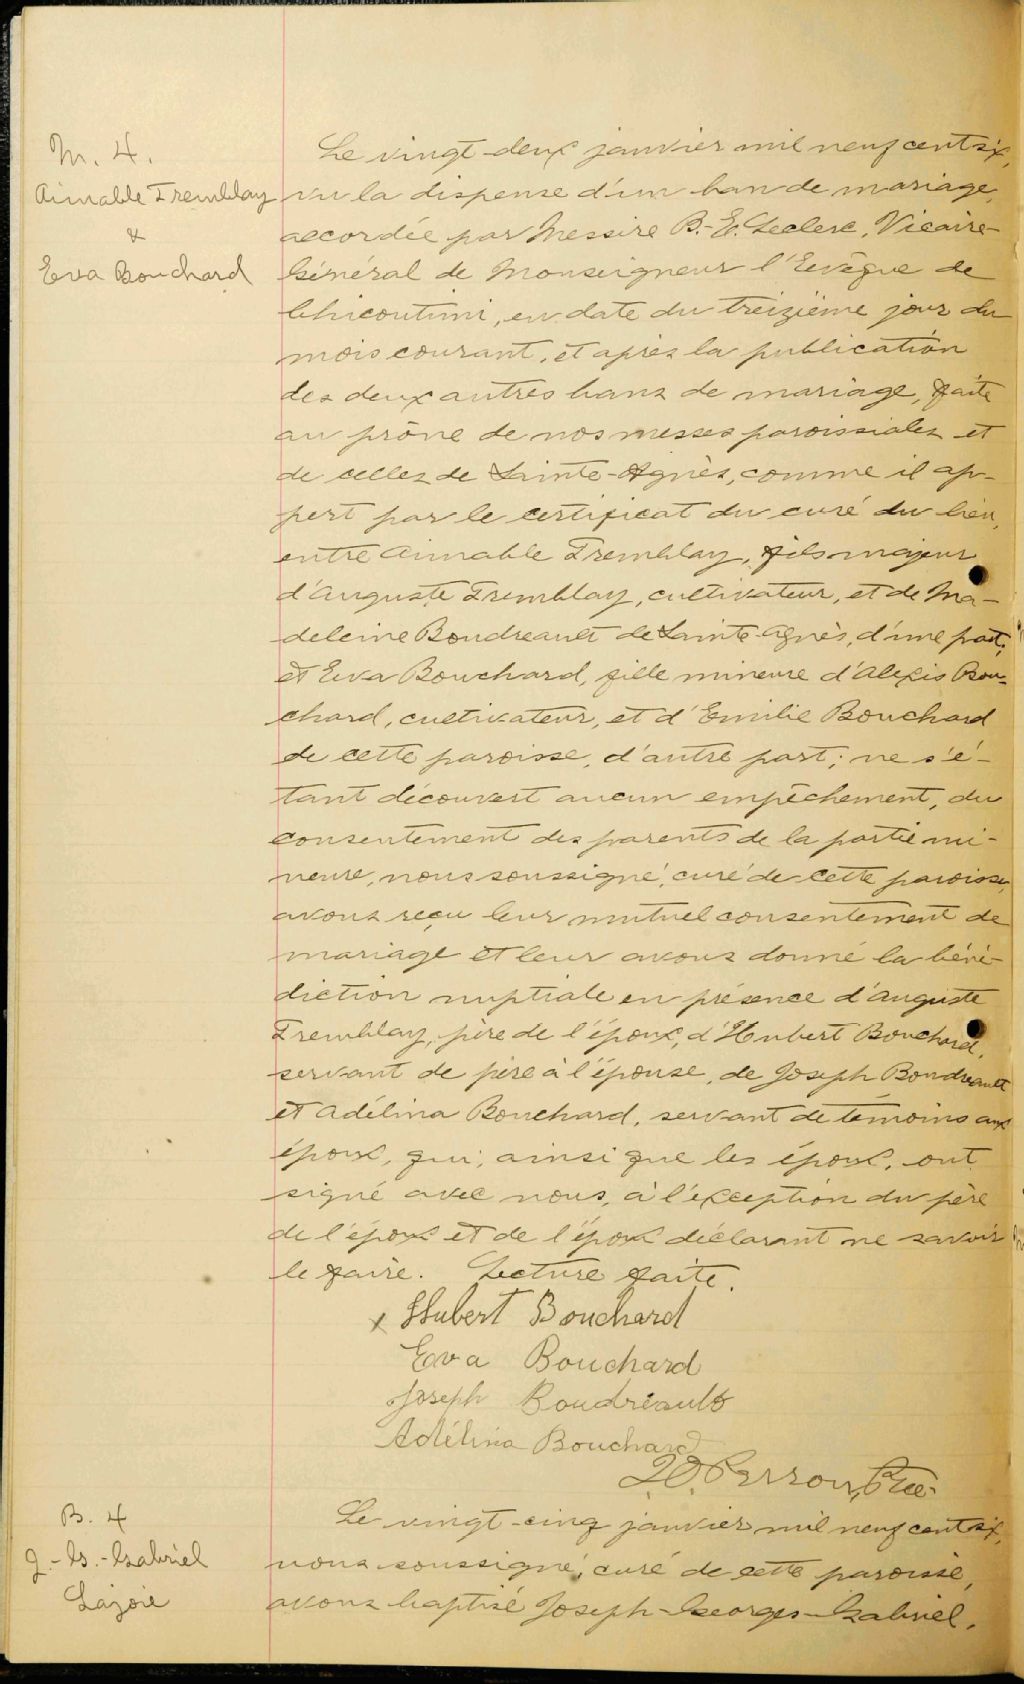 M. 4.
Aimable Tremblay
&
Eva Bouchard
Le vingt-deux janvier mil neuf cent six,
vu la dispense d'un ban de mariage,
accordée par Messire B.-E. Leclerc, Vicaire-
Général de Monseigneur l'Evêque de
Chicoutimi, en date du treizième jour du
mois courant, et après la publication
des deux autres bans de mariage, faite
au prône de nos messes paroissiales et
de celles de Sainte-Agnès, comme il ap-
pert par le certificat du curé du lieu,
entre Aimable Tremblay, fils majeur
d'Auguste Tremblay, cultivateur, et de Ma-
deleine Boudreault de Sainte-Agnès, d'une part;
et Eva Bouchard, fille mineure d'Alexis Bou-
chard, cultivateur, et d'Emilie Bouchard
de cette paroisse, d'autre part; ne s'é-
tant découvert aucun empêchement, du
consentement des parents de la partie mi-
neure, nous soussigné, curé de cette paroisse,
avons reçu leur mutuel consentement de
mariage et leur avons donné la béné-
diction nuptiale en présence d'Auguste
Tremblay, père de l'époux, d'Hubert Bouchard,
servant de père à l'épouse, de Joseph Boudreault
et Adélina Bouchard, servant de témoins aux
époux, qui, ainsi que les époux, ont
signé avec nous, à l'exception du père
de l'époux et de l'époux déclarant ne savoir
le faire. Lecture faite.
x Hubert Bouchard
Eva Bouchard
Joseph Boudréault
Adélina Bouchard
Perron, Ptre
B. 4
J.-G.-Gabriel
Lajoie
Le vingt-cinq janvier mil neuf cent six,
nous soussigné, curé de cette paroisse,
avons baptisé Joseph-Georges-Gabriel,